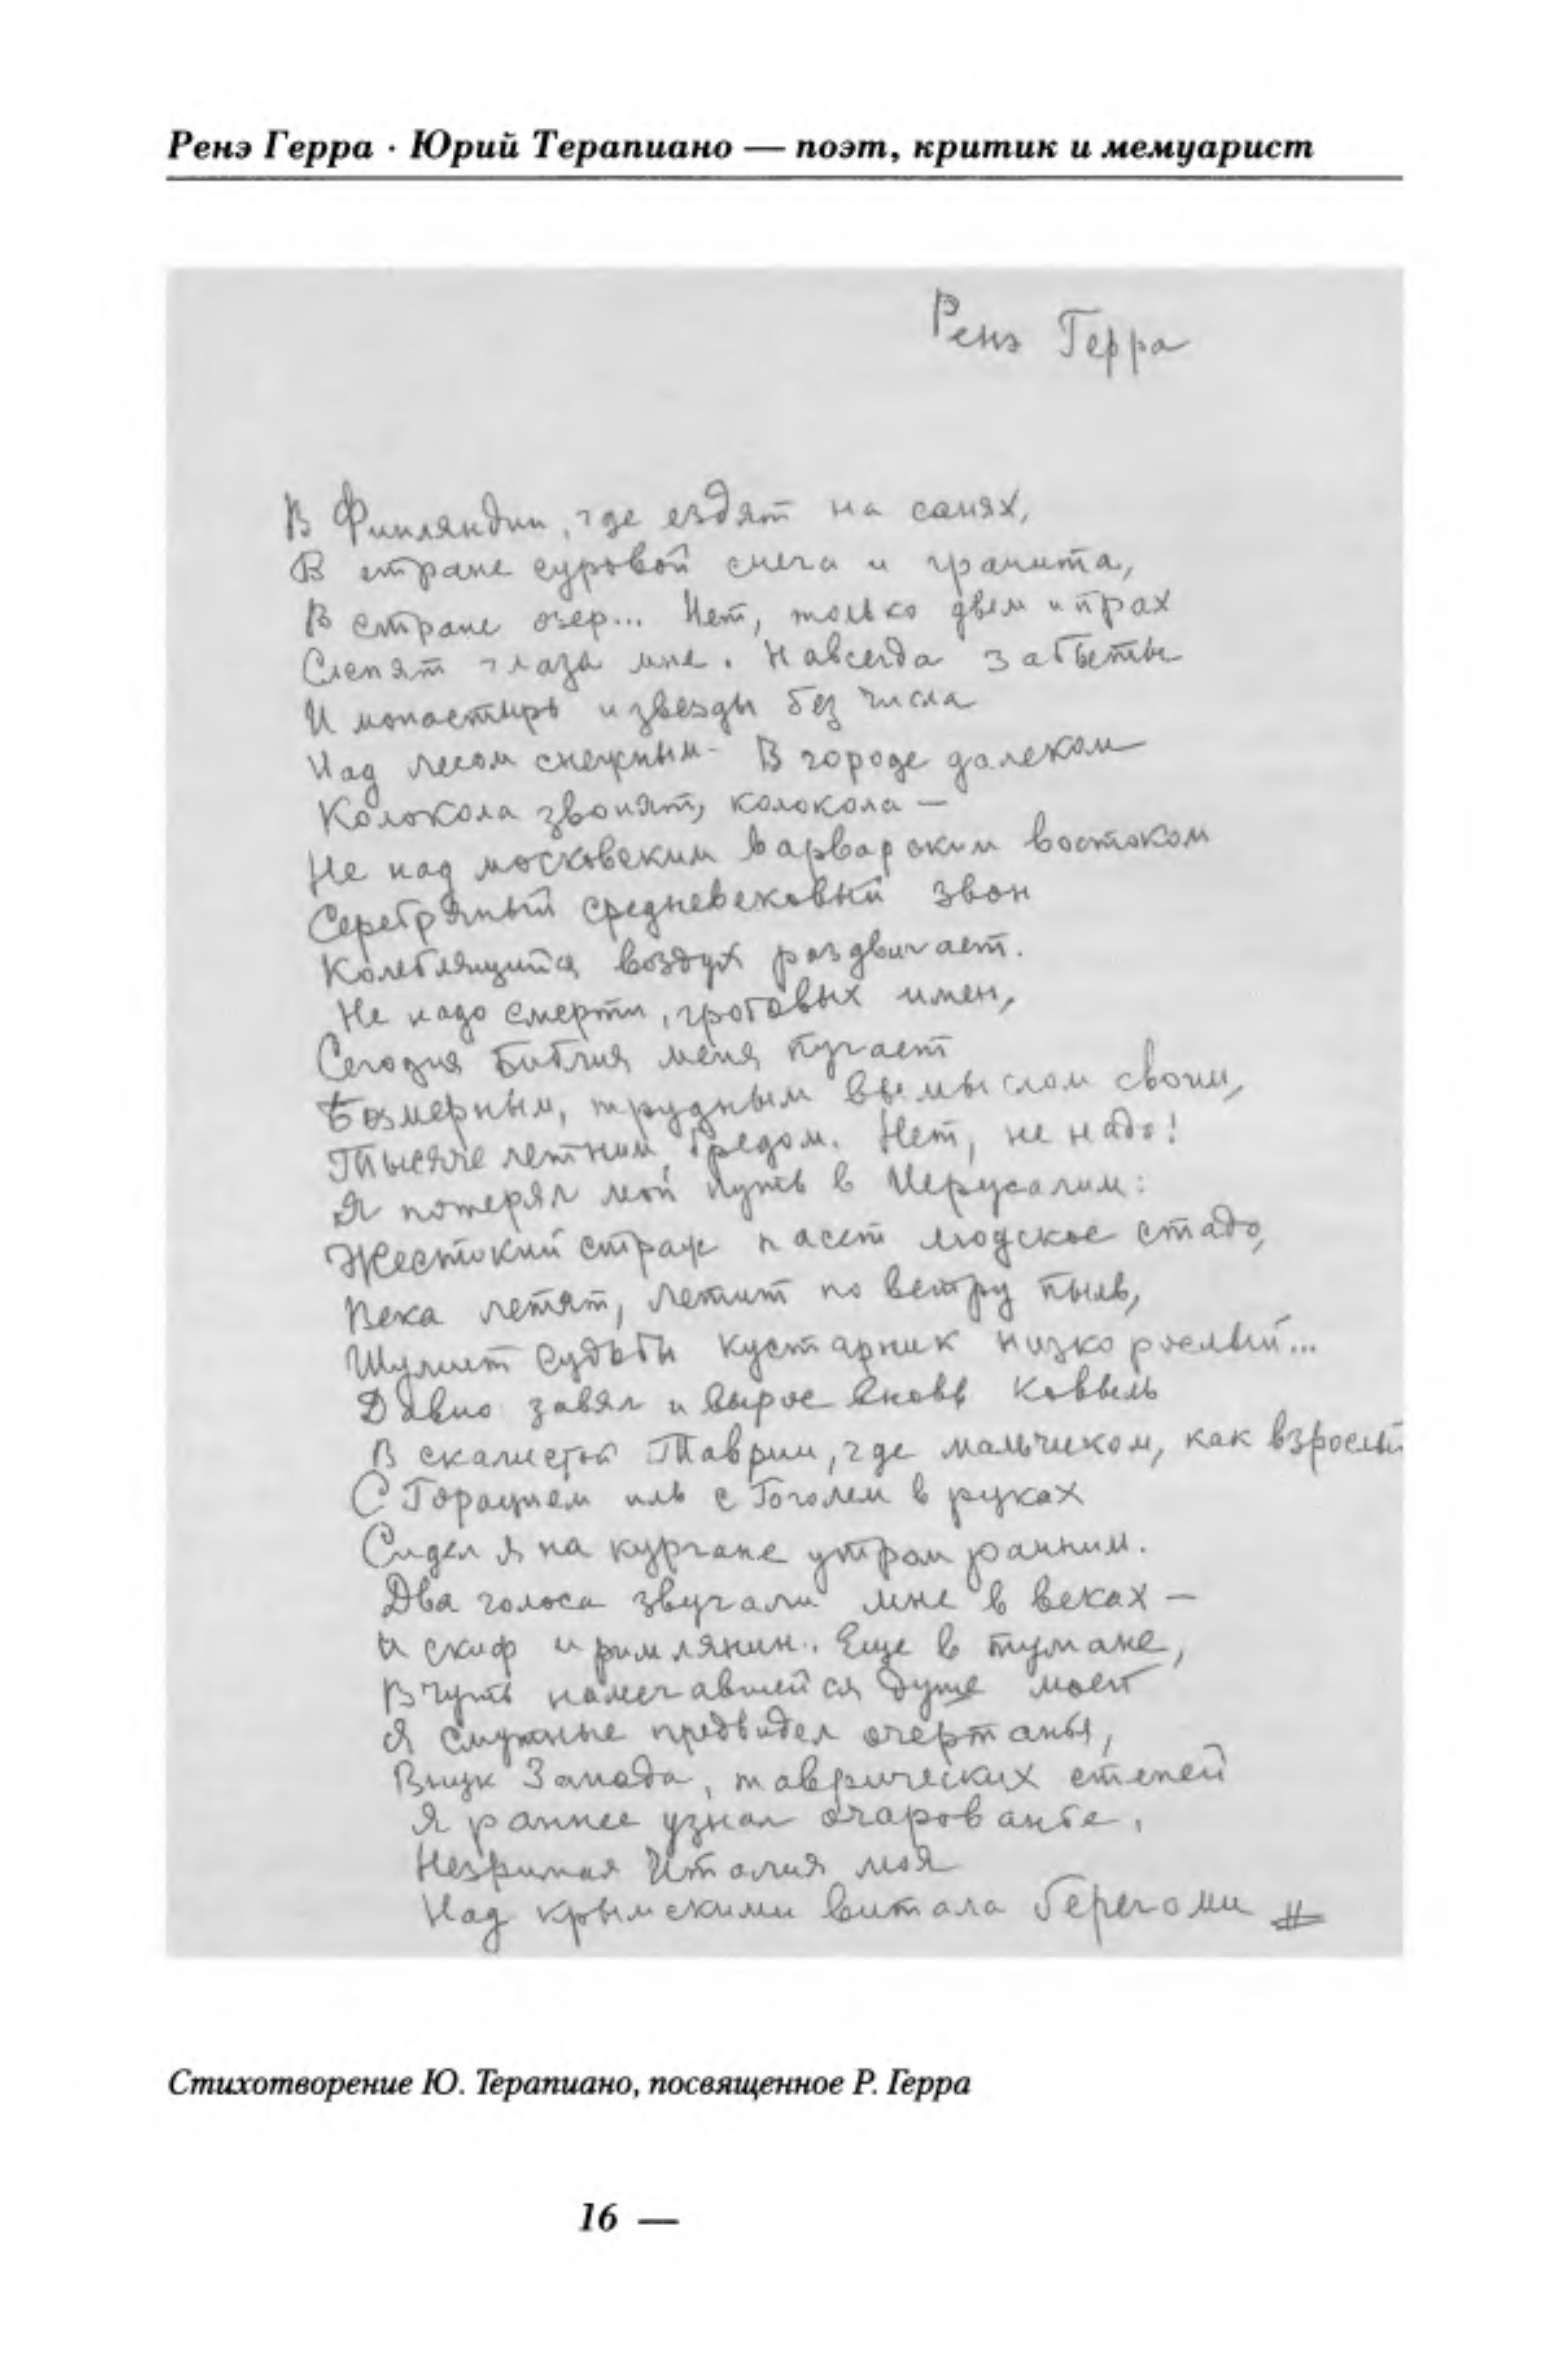 Ренэ Герра · Юрий Терапиано — поэт, критик и мемуарист
Ренэ Герра
В Финляндии, где ездят на санях,
В стране суровой снега и гранита,
В стране озер... Нет, только дым и прах
Слепят глаза мне. Навсегда забыты
И монастырь и звезды без числа
Над лесом снежным. В городе далеком
Колокола звонят, колокола —
Не над московским варварским востоком
Серебряный средневековый звон
Колеблящийся воздух раздвигает.
Не надо смерти, гробовых имен,
Сегодня Библия меня пугает
Безмерным, трудным вымыслом своим,
Тысячелетним бредом. Нет, не надо!
Я потерял мой путь в Иерусалим:
Жестокий страж пасет людское стадо,
Века летят, летит по ветру пыль,
Шумит судьбы кустарник низкорослый...
Давно завял и вырос вновь ковыль
В скалистой Таврии, где мальчиком, как взрослый
С Горацием иль с Гоголем в руках
Сидел я на кургане утром ранним.
Два голоса звучали мне в веках —
И скиф и римлянин. Еще в тумане,
В чуть намечавшейся душе моей
Я смутные предвидел очертанья,
Внук Запада, таврических степей
Я раннее узнал очарованье,
Незримая Италия моя
Над крымскими витала берегами
Стихотворение Ю. Терапиано, посвященное Р. Герра
16 —